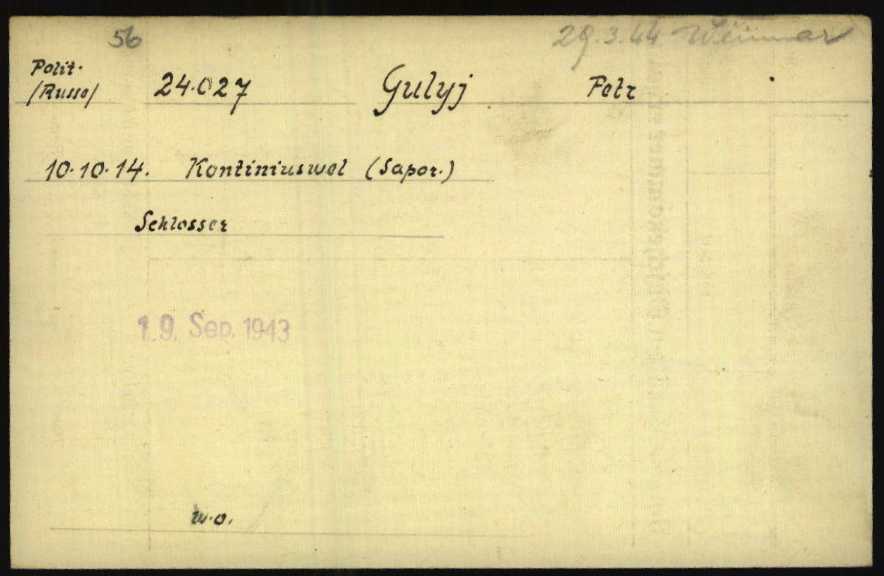 56 29.3.44 Weimar
Polit.
/Russe/ 24.027 Gulyj Petr
10.10.14. Kontiniuswel (Sapor.)
Schlosser
19. Sep. 1943
w.o.